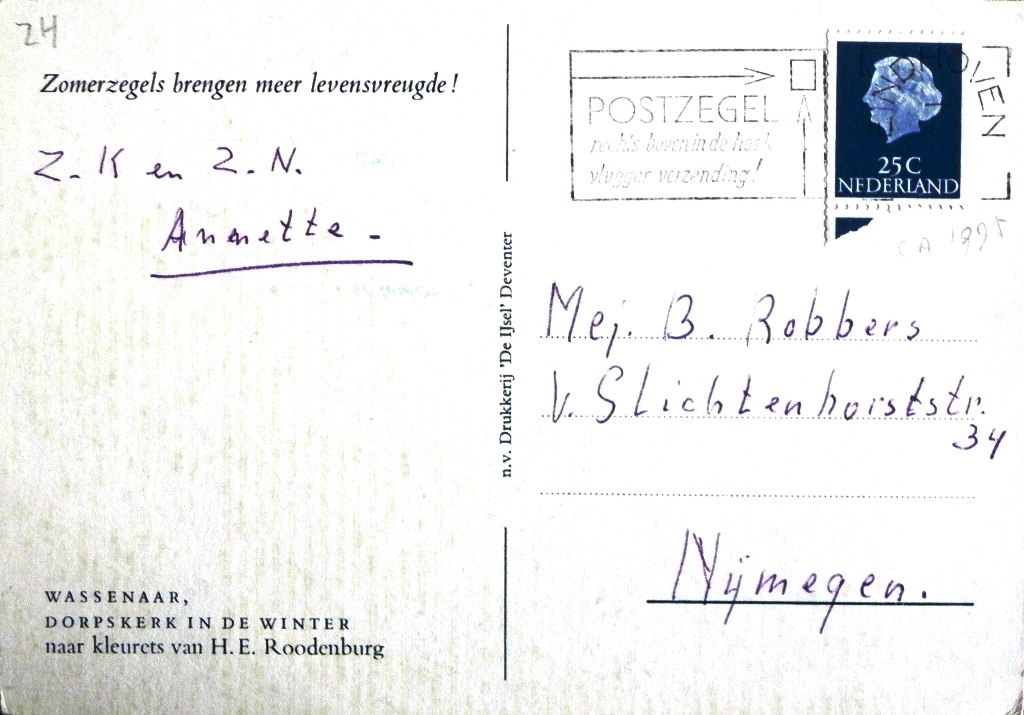 24
Zomerzegels brengen meer levensvreugde!
Z. K en Z. N.
Annette.
WASSENAAR,
DORPSKERK IN DE WINTER
naar kleurets van H. E. Roodenburg
n.v. Drukkerij 'De IJsel' Deventer
POSTZEGEL
rechts boven in de hoek
vlugger verzending!
25 C
NEDERLAND
CA
Mej. B. Robbers
v. Slichtenhorststr.
34
Nijmegen.